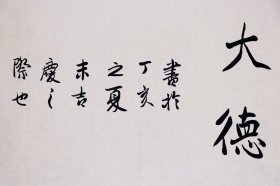 大德
書於
丁亥
之夏
末吉
慶之
際也